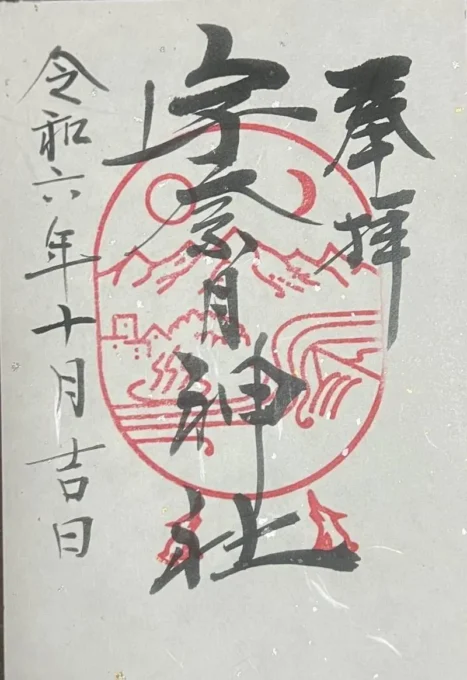 奉拝
宇奈月神社
令和六年十月吉日